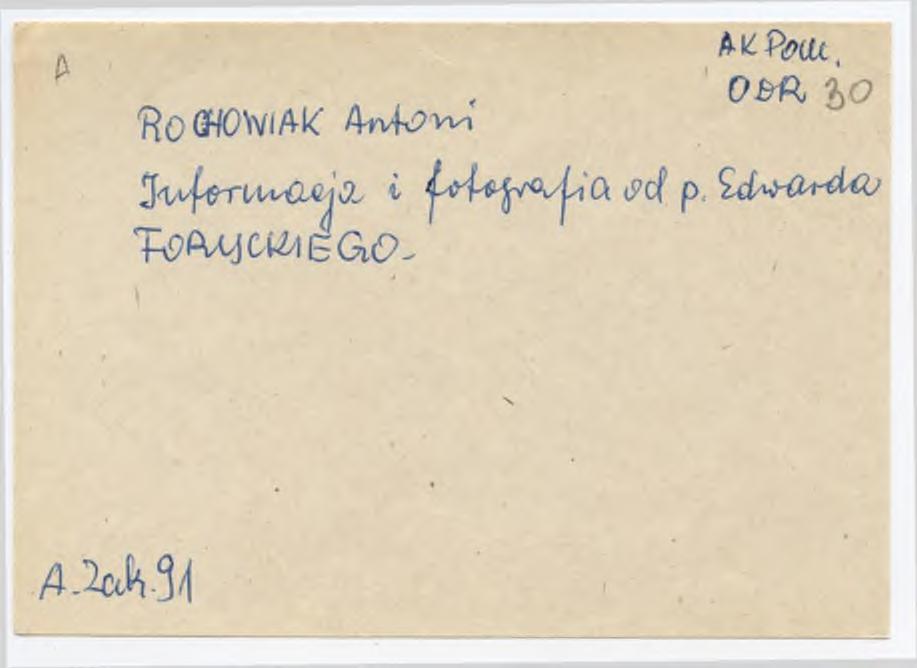 A
AK Pom.
ODR 30
ROCHOWIAK Antoni
Informacja i fotografia od p. Edwarda
FORYCKIEGO-
A. Zak. 91